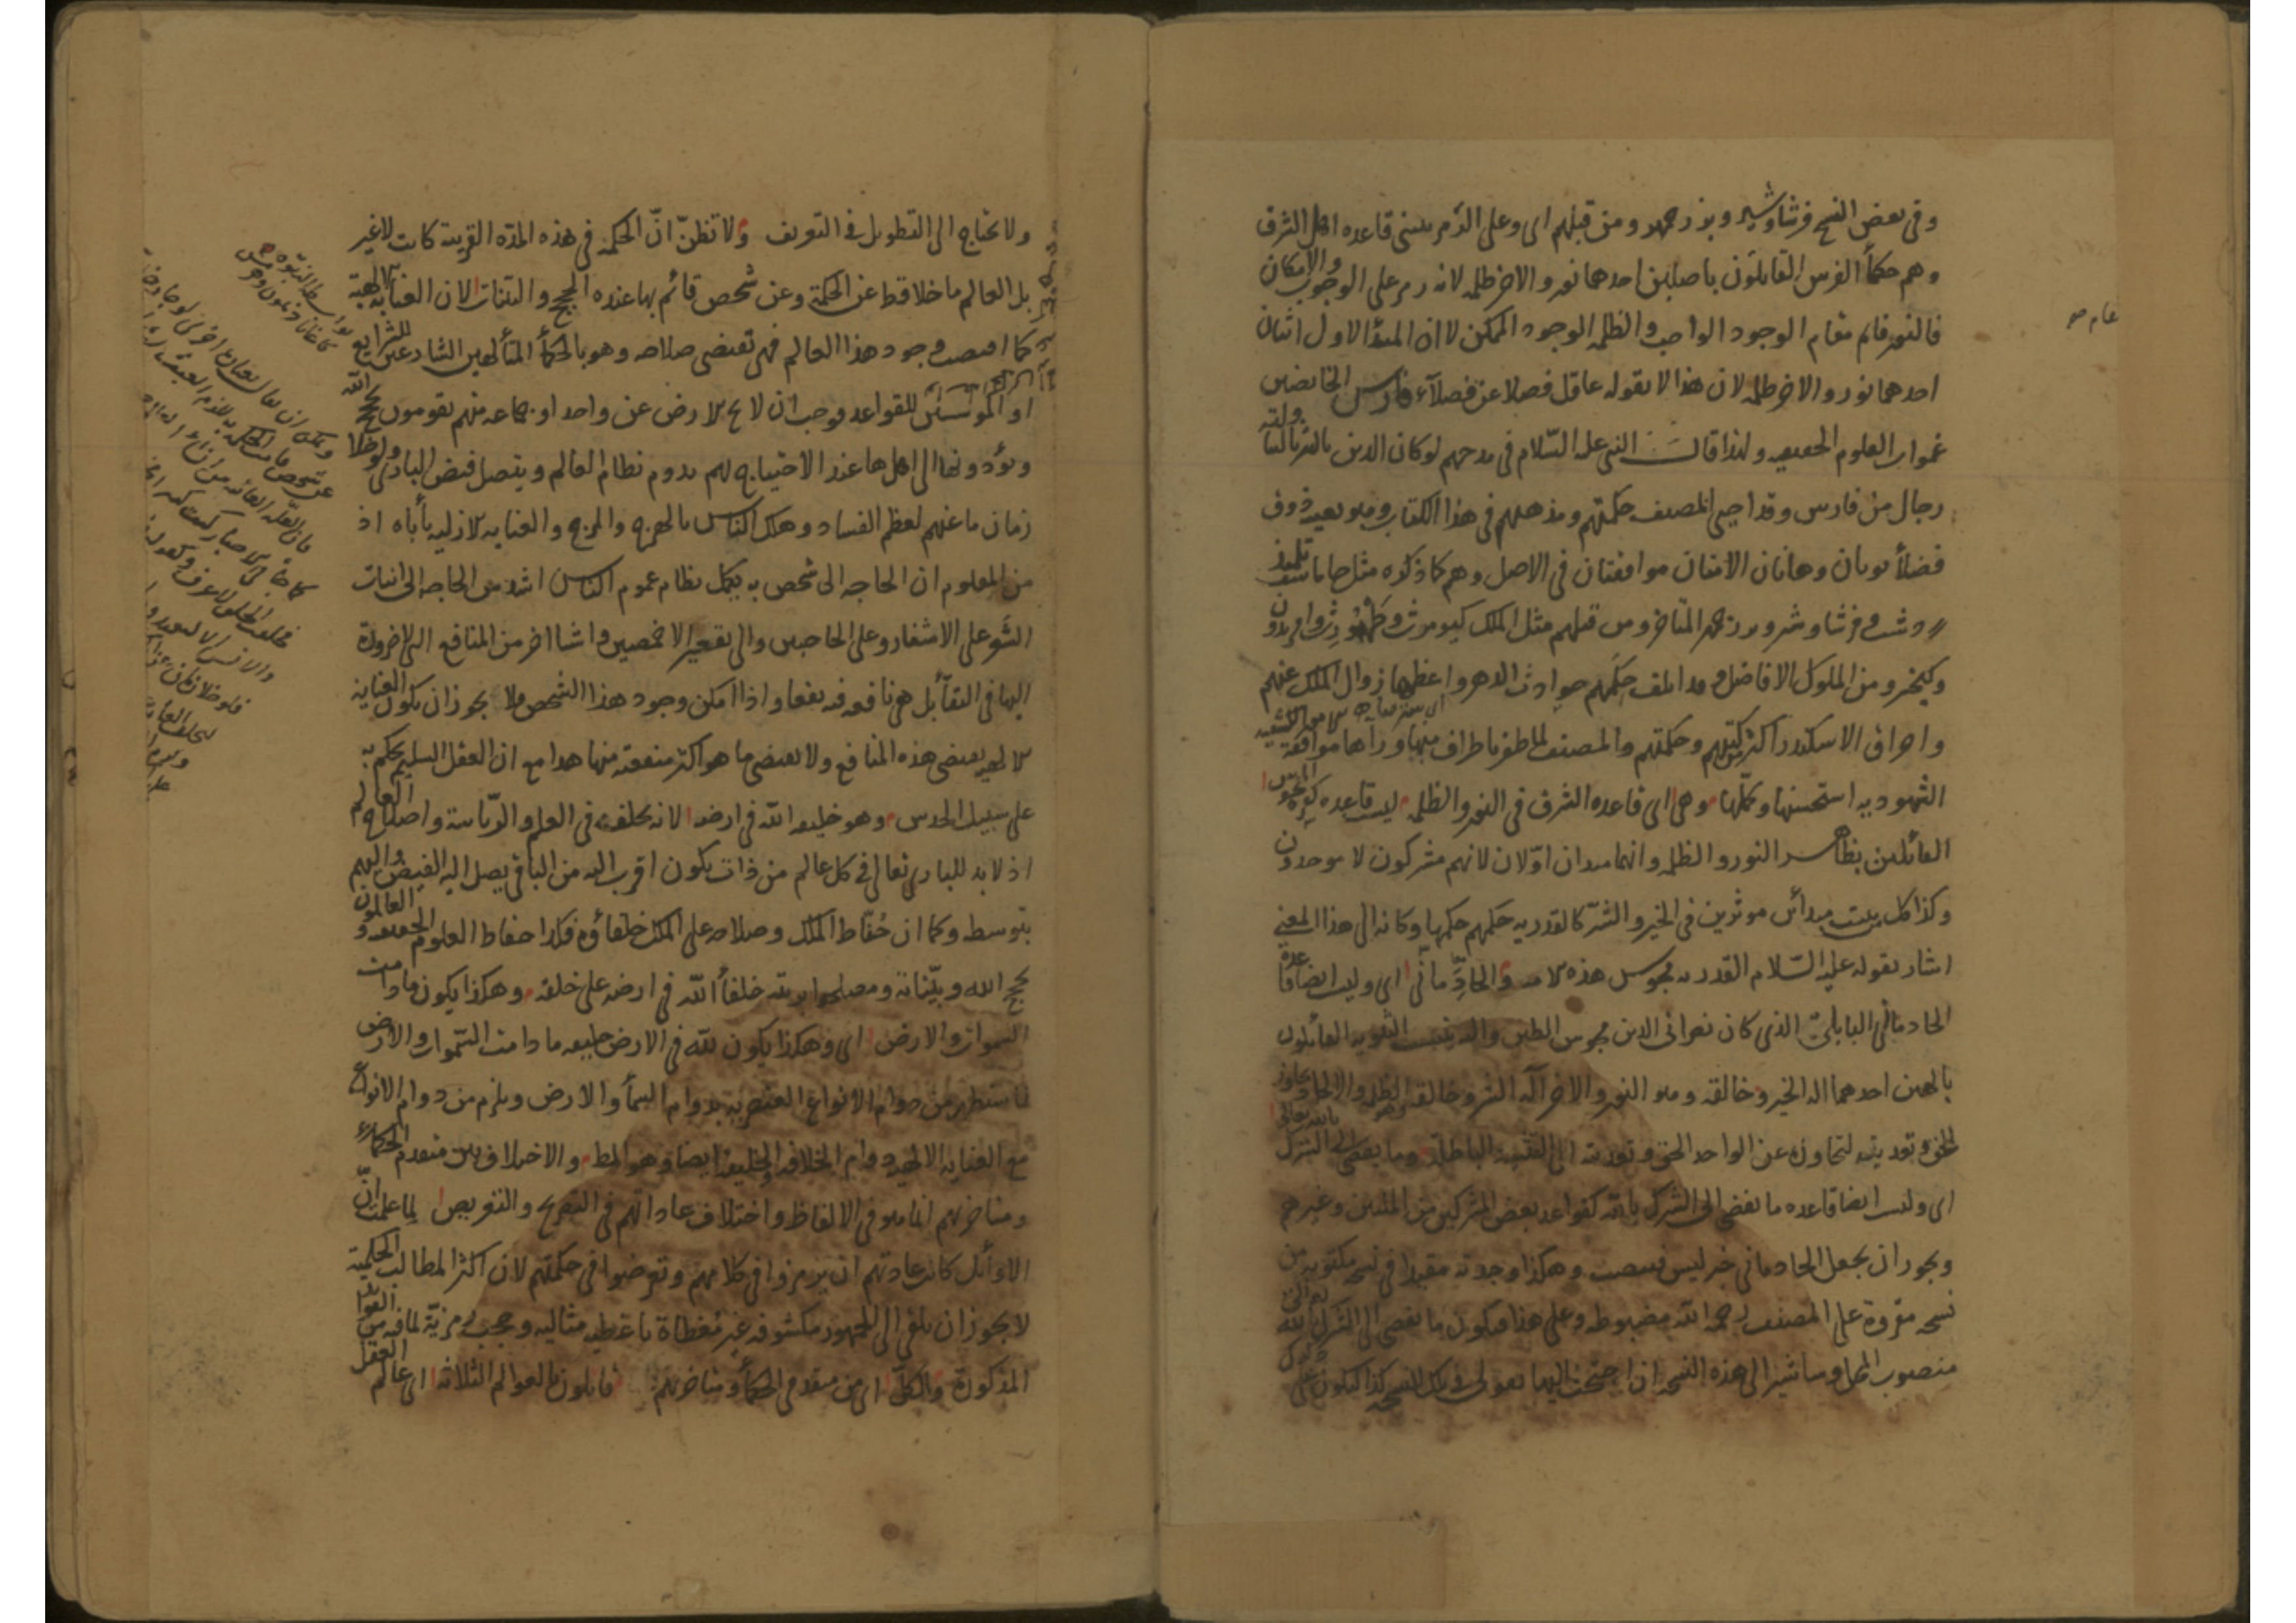 وفى بعض النسخ فرشاوشير وبوزرجمهر ومن قبلهم اى وعلى الرمز يبتنى قاعدة اهل الشرق
وهم حكمأ الفرس القائلون باصلين احدهما نور والاخر ظلمة لانه رمز على الوجوب والامكان
فالنور قائم مقام الوجود الواجب والظلمة الوجود الممكن لا ان المبدأ الاول اثنان
احدهما نور والاخر ظلمة لان هذا لا يقوله عاقل فضلا عن فضلآء فارس الخائضين
غمرات العلوم الحقيقية ولهذا قال النبى عليه السلام فى مدحهم لو كان الدين بالثريا لتناولته
رجال من فارس وقد احيى المصنف حكمتهم ومذهبهم فى هذا الكتاب وهو بعينه ذوق
فضلأ يونان وهاتان الامتان موافقتان فى الاصل وهم كما ذكره مثل جاماسف تلميذ
زردشت وفرشاوشتر وبوزرجمهر المتاخر ومن قبلهم مثل الملك كيومرث وطهمورث وافريدون
وكيخسرو من الملوك الافاضل وقد اتلف حكمهم حوادث الدهر واعظمها زوال الملك عنهم
واحراق الاسكندر اكثر كتبهم وحكمتهم والمصنف لما ظفر باطراف منها ورآها موافقة للامور الكشفية
الشهودية استحسنها وكملها وهى اى قاعدة الشرق فى النور والظلمة ليست قاعدة كفرة المجوس
القائلين بظاهر النور والظلمة وانهما مبدان اولان لانهم مشركون لا موحدون
وكذا كل من يثبت مبدأين موثرين فى الخير والشر كالقدرية حكمهم حكمها وكانه الى هذا المعنى
اشار بقوله عليه السلام القدرية مجوس هذه الامة والحاد مانى اى وليست ايضا قاعدة
الحاد مانى البابلى الذى كان نصرانى الدين مجوسى الطين واليه ينسب الثنوية القائلون
بالهين احدهما اله الخير وخالقه وهو النور والاخر اله الشر وخالقه وهو الظلمة والالحاد تجاوز
الحق وتعديته لتجاوزه عن الواحد الحق وتعديته الى التثنية الباطلة وما يفضى الى الشرك بالله تعالى
اى وليست ايضا قاعدة ما يفضى الى الشرك بالله كقواعد بعض المشركين من الملل وغيرهم
ويجوز ان يجعل الحاد مانى خبر ليس فينصب وهكذا وجدته مقيدا فى نسخة مكتوبة من
نسخة مقروة على المصنف رحمه الله مضبوطة وعلى هذا فيكون ما يفضى الى الشرك بالله
منصوب المحل وساشير الى هذه النسخة ان احتجت اليها بقولى وفى تلك النسخة كذا ليكون على
ولا نحتاج الى التطويل فى التعريف ولا تظنن ان الحكمة فى هذه المدة القريبة كانت لا غير
بل العالم ما خلا قط عن الحكمة وعن شخص قائم بها عنده الحجج والبينات لان العناية الالهية
كما اقتضت وجود هذا العالم فهى تقتضى صلاحه وهو بالحكمأ المتألهين الشارعين للشرايع
او المؤسسين للقواعد فوجب ان لا يخ الارض عن واحد او جماعة منهم يقومون بحجج الله
ويؤدونها الى اهلها عند الاحتياج بهم يدوم نظام العالم ويتصل فيض البارى ولو خلا
زمان ما عنهم لعظم الفساد وهلك الناس بالهرج والمرج والعناية الازلية يأباه اذ
من المعلوم ان الحاجة الى شخص به يكمل نظام عموم الناس اشد من الحاجة الى انبات
الشعر على الاشفار وعلى الحاجبين والى تقعير الاخمصين واشيا اخر من المنافع التى لا ضرورة
اليها فى البقآ بل هى نافعة فيه نفعا واذا امكن وجود هذا الشخص فلا يجوز ان يكون العناية
الالهية يقتضى هذه المنافع ولا يقتضى ما هو اكثر منفعة منها هذا مع ان العقل السليم يحكم به
على سبيل الحدس وهو خليفة الله فى ارضه لانه يخلفه فى العلم والرياسة واصلاح العالم
اذ لا بد للبارى تعالى فى كل عالم من ذات يكون اقرب اليه من الباقى يصل اليه الفيض واليهم
بتوسطه وكما ان حفاظ الملك وصلاحه على الملك خلفاؤه فكذا حفاظ العلوم الحقيقية والعالمون
بحجج الله وبيناته ومصلحوا بريته خلفأ الله فى ارضه على خلقه وهكذا يكون ما دامت
السموات والارض اى وهكذا يكون لله فى الارض خليفة ما دامت السموات والارض
فاستظهر من دوام الانواع العنصرية بدوام السمأ والارض ويلزم من دوام الانواع
مع العناية الالهية دوام الخلافة والخليفة ايضا وهو المط والاختلاف بين متقدمى الحكمآء
ومتاخريهم انما هو فى الالفاظ واختلاف عاداتهم فى التصريح والتعريض لما علمت ان
الاوائل كانت عادتهم ان يرمزوا فى كلامهم وتعرضوا فى حكمتهم لان اكثر المطالب الحكمية
لا يجوز ان يلقى الى الجمهور مكشوفة غير مغطاة باغطية مثالية وحجب رمزية لما فيه من الفوائد
المذكورة والكل اى من متقدمى الحكمأ ومتاخريهم قائلون بالعوالم الثلاثة اى عالم العقل